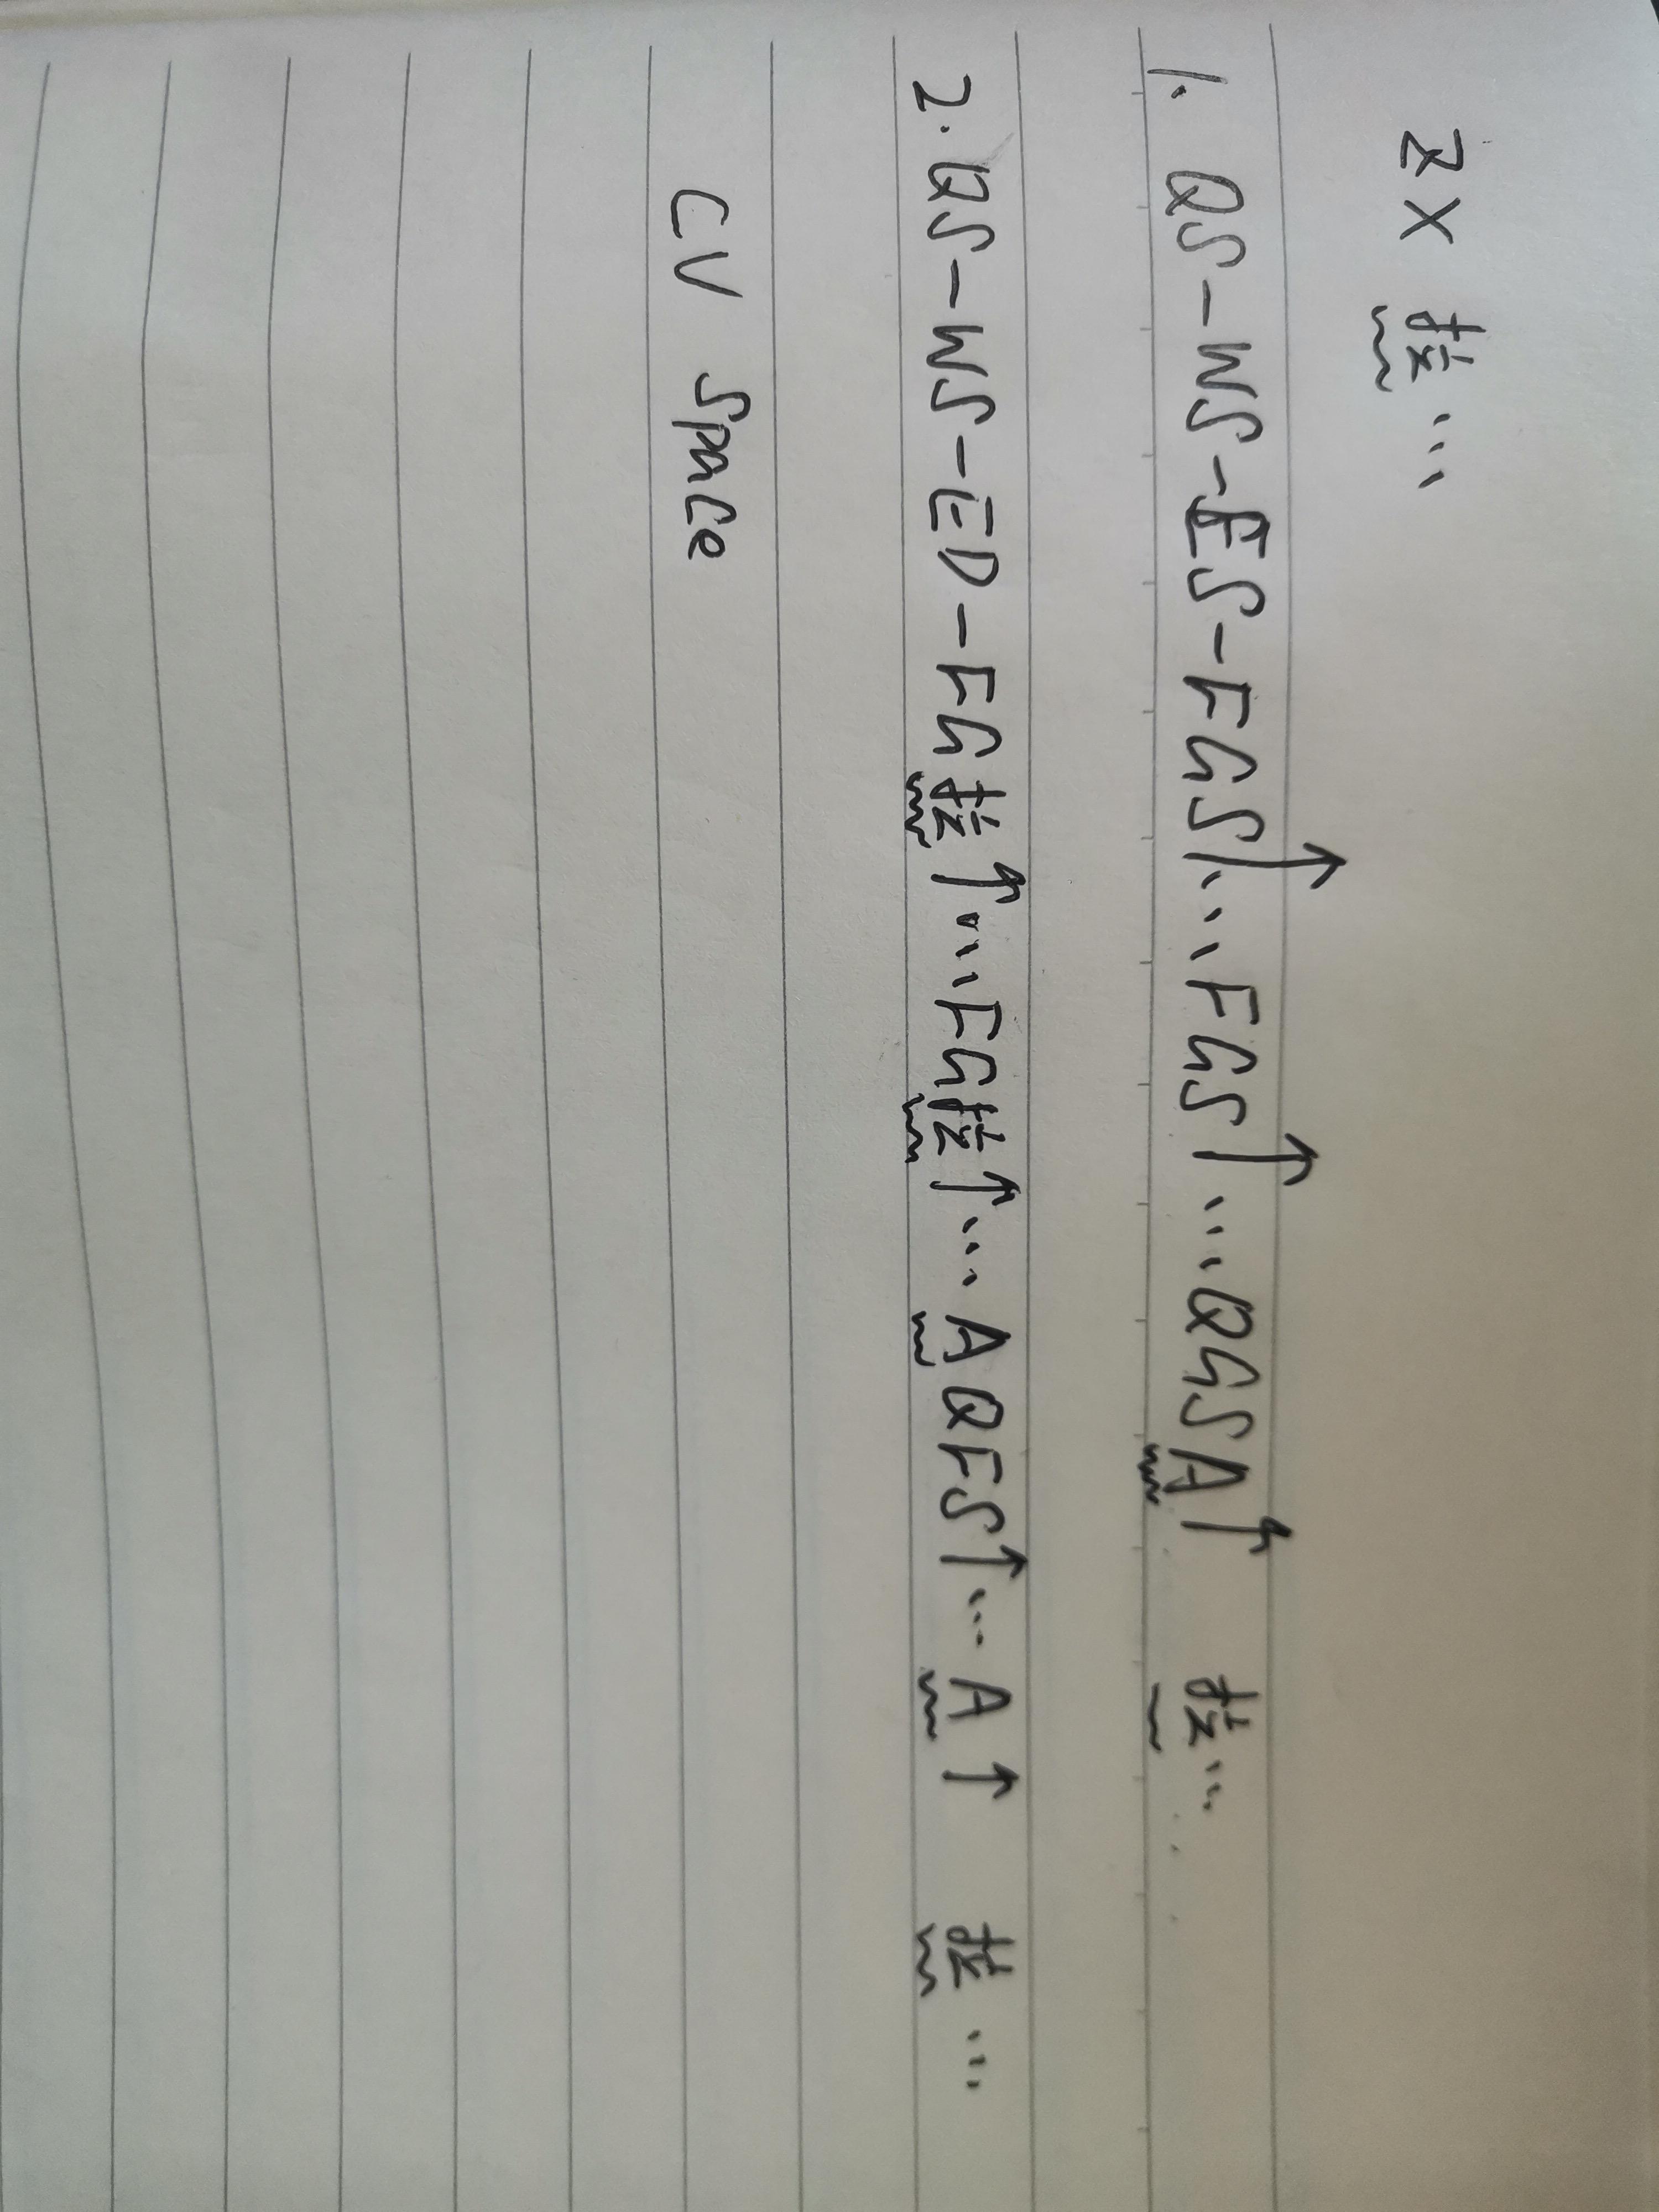 ZX 拉...
1. QS-WS-ES-FGS↑...FGS↑...QGSA↑ 拉...
2. QS-WS-ED-FG拉↑...FG拉↑...AQFS↑...A↑ 拉...
CV Space